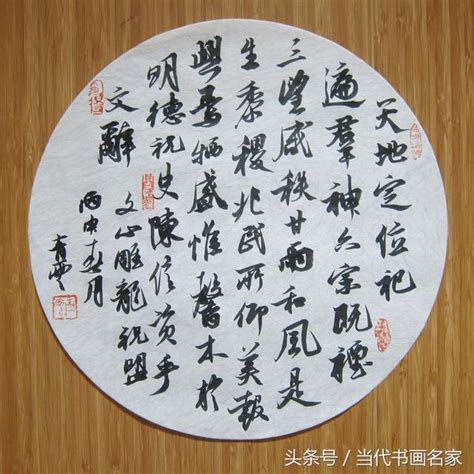 天地定位祀
遍羣神六宗既禋
三望咸秩甘雨和風是
生黍稷兆民所仰美報
興焉牺盛惟馨本於
明德祝史陳信資乎
文辭
文心雕龍祝盟
丙申春月
青雲
头条号／当代书画名家